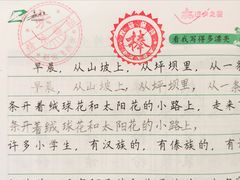 看我写得多漂亮
棒
早晨，从山坡上，从坪坝里，从一条
早晨，从山坡上，从坪坝里，从一
条开着绒球花和太阳花的小路上，走来
条开着绒球花和太阳花的小路上，
许多小学生，有汉族的，有傣族的，有